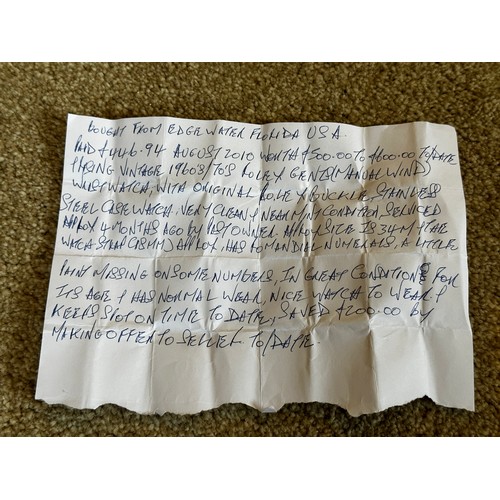 BOUGHT FROM EDGEWATER FLORIDA USA.
PAID £446.94 AUGUST 2010 WORTH £500.00 TO £600.00 TO/DATE
VINTAGE 1960'S/70'S ROLEX GENTS (MANUAL WIND)
WRISTWATCH, WITH ORIGINAL ROLEX BUCKLE, STAINLESS
STEEL CASE WATCH, VERY CLEAN & NEAR MINT CONDITION, SERVICED
APPROX 4 MONTHS AGO BY PAST OWNER. APPROX SIZE IS 34-M & THE
WATCH STRAP (18MM) APPROX. HAS ROMAN DIAL NUMERALS, A LITTLE
PAINT MISSING ON SOME NUMBERS, IN GREAT CONDITION FOR
ITS AGE & HAS NORMAL WEAR, NICE WATCH TO WEAR &
KEEPS SPOT ON TIME TO DATE, SAVED £200.00 BY
MAKING OFFER TO SELLER TO/DATE.